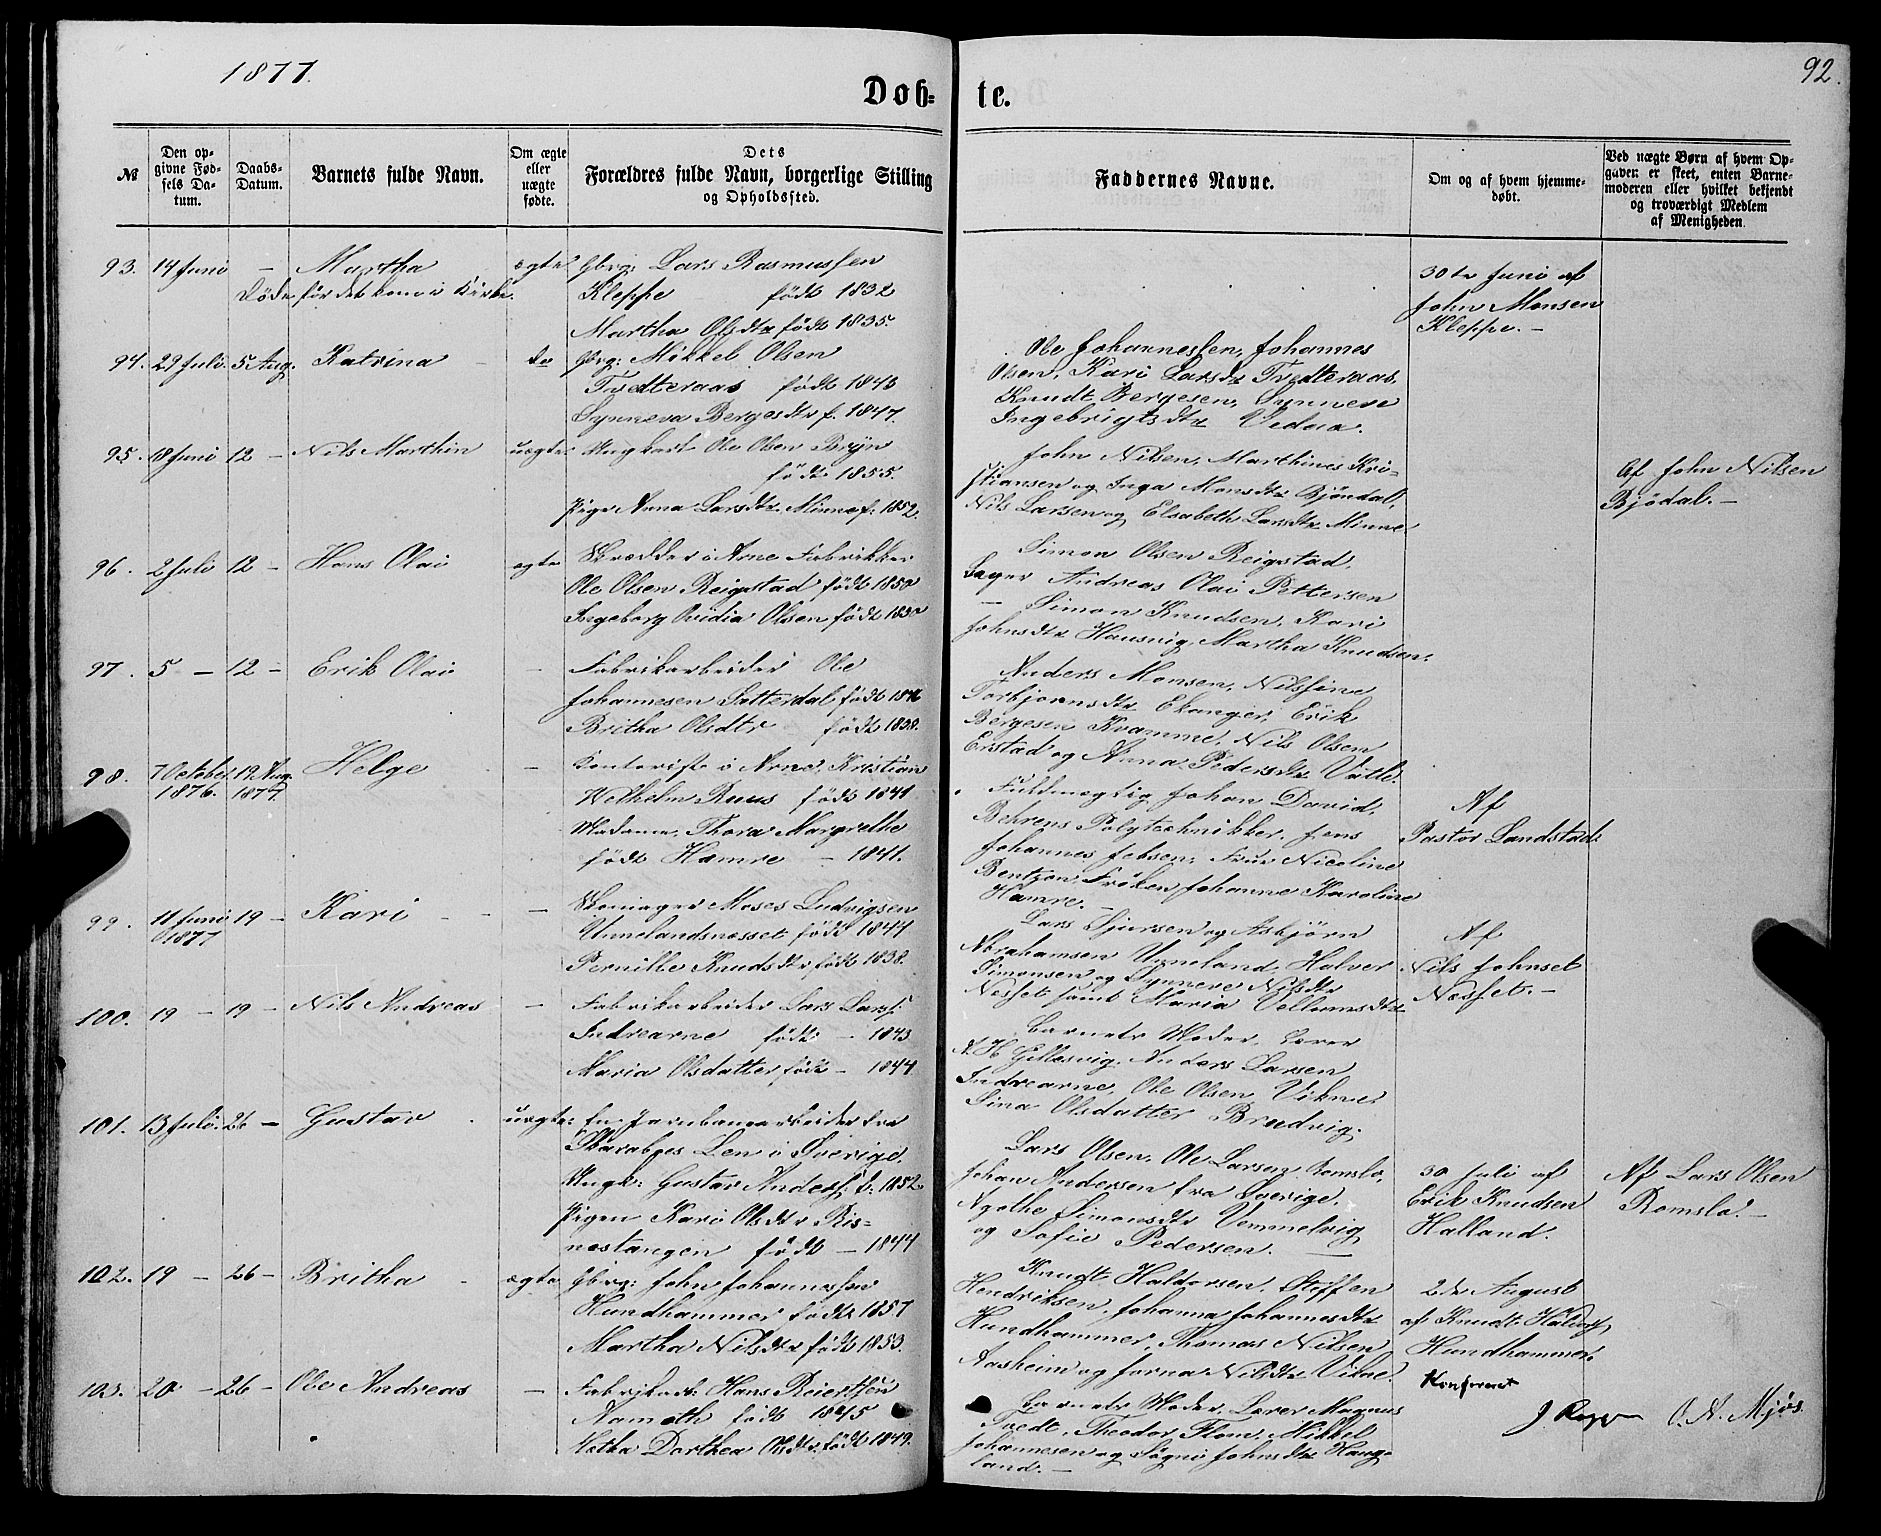 1877.
92.
Døb-
te.
№
Den op-
givne Fød-
sels Da-
tum.
Daabs-
Datum.
Barnets fulde Navn.
Om ægte
eller
uægte
fødte.
Dets
Forældres fulde Navn, borgerlige Stilling
og Opholdssted.
Faddernes Navne.
Om og af hvem hjemme-
døbt.
Ved uægte Børn af hvem Op-
gaven er skeet, enten Barne-
moderen eller hvilket bekjendt
og troværdigt Medlem
af Menigheden.
93. 14 Juni – Martha ægte Gbrg: Lars Rasmussen
Døde før det kom i Kirke. Kleppe født 1832
Martha Olsdtr født 1835.
30te Juni af
John Monsen
Kleppe. –
94. 29 Juli. 5 Aug. Katrina – do Gbrg: Mikkel Olsen
Tvedteraas født 1843
Synneva Bergesdtr f. 1847.
Ole Johannessen, Johannes
Olsen, Kari Larsdtr Tvedteraas.
Knudt Bergesen, Synneve
Ingebrigtsdtr Vedaa.
95. 18 Juni 12 – Nils Marthin uægte: Ungkarl Ole Olsen Bryn
født 1855.
Pige Anna Larsdtr. Minne f: 1852.
John Nilsen, Marthines Kri-
stiansen og Inga Monsdtr Bjöndal,
Nils Larsen og Elsabeth Larsdtr Minne.
Af John Nilsen
Bjödal. –
96. 2 Juli 12 – Hans Olai ægte Skrædder i Arne Fabrikker
Ole Olsen Reigstad født 1850
Ingeborg Ovidia Olsen født 1850
Simon Olsen Reigstad,
Bager Andreas Olai Pettersen
– Simon Knudsen, Kari
Johnsdtr Hausvig, Martha Knudsen.
97. 5 – 12 – Erik Olai – Fabrikarbeider Ole
Johannesen Sætterdal født 1846
Britha Olsdtr født 1838.
Anders Monsen, Nilsine
Torbjornsdtr Ekanger, Erik
Bergesen Kvamme, Nils Olsen
Erstad og Anna Pedersdtr Vatle.
98. 7 October 19 Aug. Helge – Kontoriste i Arne, Kristian
1876. 1877. Welhelm Ruus født 1841
Madame Thora Margrethe
født Hamre – 1841.
Fuldmægtig Johan David,
Behrens Polytechnikker, Jens
Johannes Jebsen, Frue Nicoline
Bentzon, Fröken Johanne Karoline
Hamre. –
Af
Pastor Landstad.
99. 11 Juni 19 – Kari – – – Skomager Moses Ludvigsen
1877 Unnelandsnesset født 1844
Pernille Knudsdtr født 1838.
Lars Sjursen og Asbjörn
Abrahamsen Unneland, Halver
Simonsen og Synneve Nilsdtr
Nesset samt Maria Vellumsdtr
Af
Nils Johnset
Nesset. –
100. 19 – 19 – Nils Andreas – Fabrikarbeider Lars Larss:
Indrearne født – 1843
Maria Olsdatter født – 1844.
Barnets Moder, Lærer
A. H Gillesvig. Anders Larsen
Indrearne, Ole Olsen Vikne.
Sina Olsdatter Brudvig.
101. 13 Juli. 26 – Gustav . uægte: En Jernbanearbeider fra
Skarabges Len i Sverige,
Ungk: Gustav Anders: f: 1852
Pigen Kari Olsdtr Ris-
nestangen født – 1844
Lars Olsen, Ole Larsen Romslo,
Johan Andersen fra Sverige.
Agathe Simonsdtr Vemmelvig
og Sofie Pedersen. –
30 Juli af
Erik Knudsen
Halland.
Af Lars Olsen
Romslo. –
102. 19 – 26 – Britha – ægte Gbrg: John Johannessen
Hundhammer født 1857
Martha Nilsdtr født 1853.
Knudt Haldorsen, Steffen
Hendriksen, Johanna Johannesdtr
Hundhammer, Thomas Nilsen
Aasheim og Jorna Nilsdtr Vikne.
2den August
af Knudt Haldors:
Hundhammer.
103. 20 – 26 – Ole Andreas – Fabrikarb: Hans Reiertsen
Aamoth født 1845
Metha Dorthea Olsdtr født 1849.
Barnets Moder, Lærer Magnus
Tvedt, Theodor Flom, Mikkel
Johannesen og Sögni Johnsdtr Hauge
land. –
Konfereret
O. N. Mjös.